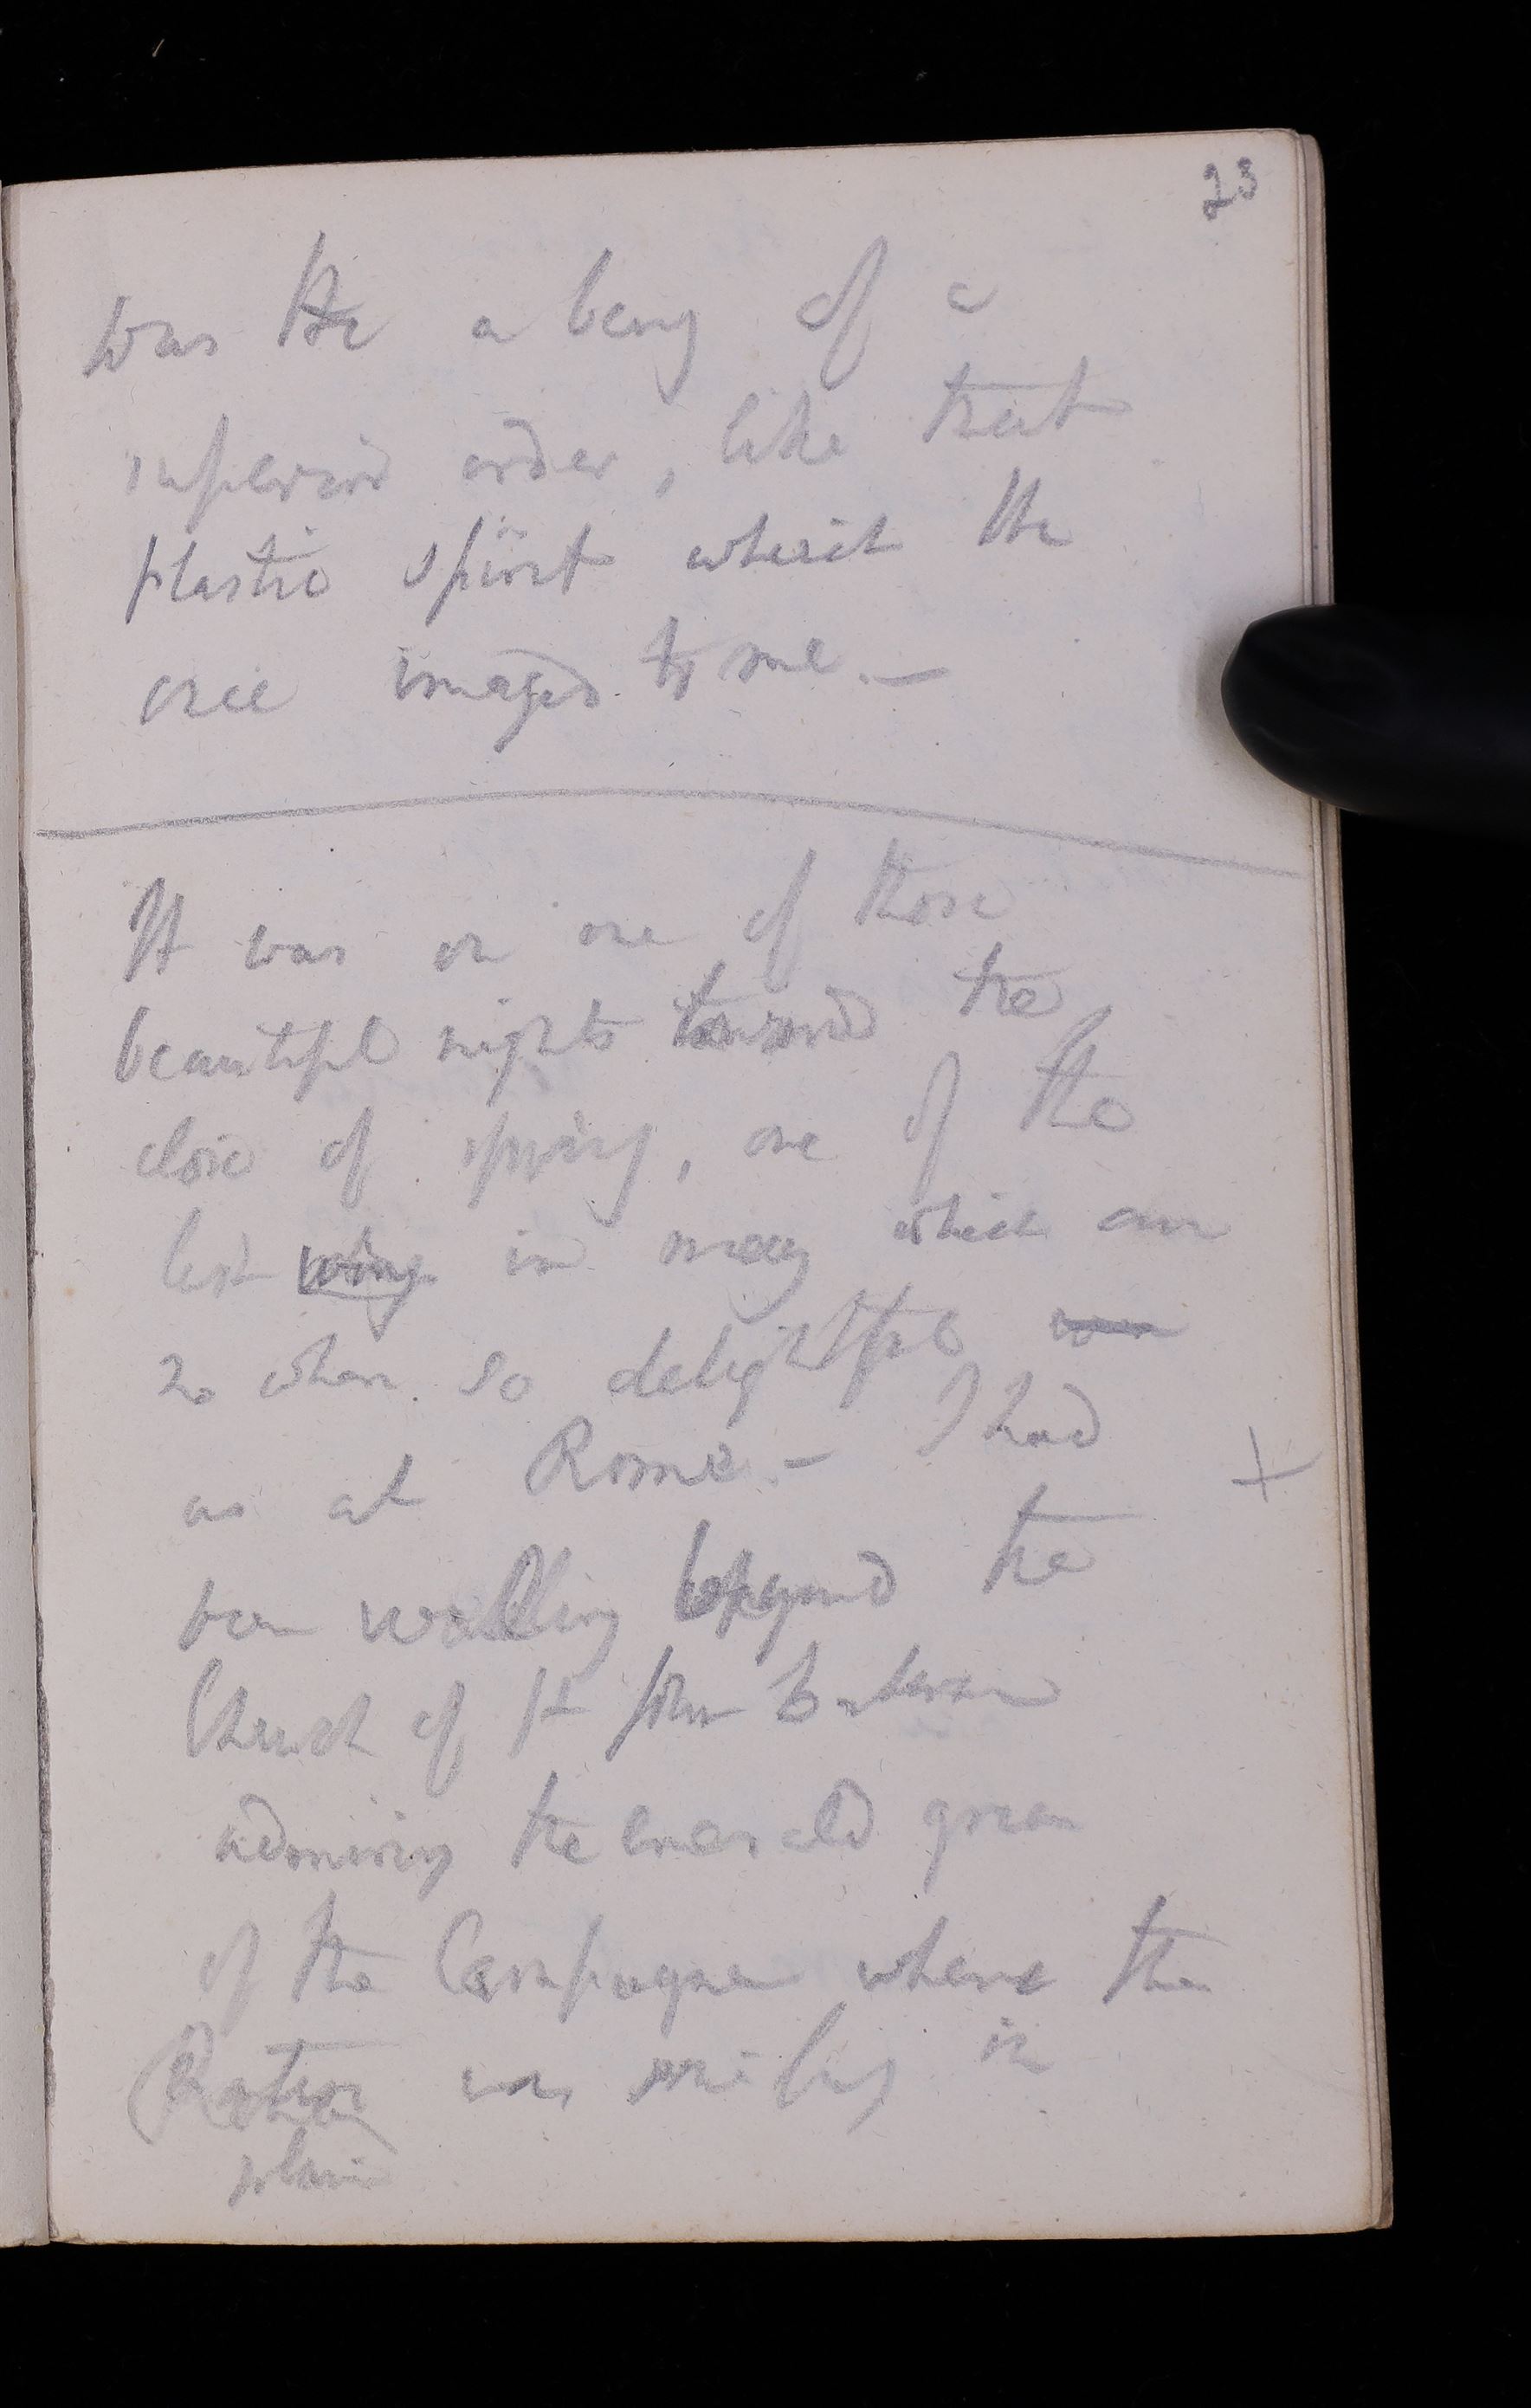 23
was the a being of a
superior order, like that
plastic spirit which the
once imaged to me. —
It was on one of those
beautiful nights toward the
close of spring, one of the
last in may which are
no where so delightful
as at Rome. — I had
+
been walking beyond the
Church of St John Lateran
admiring the emerald green
of the Campagna where the
was smiling in
plain